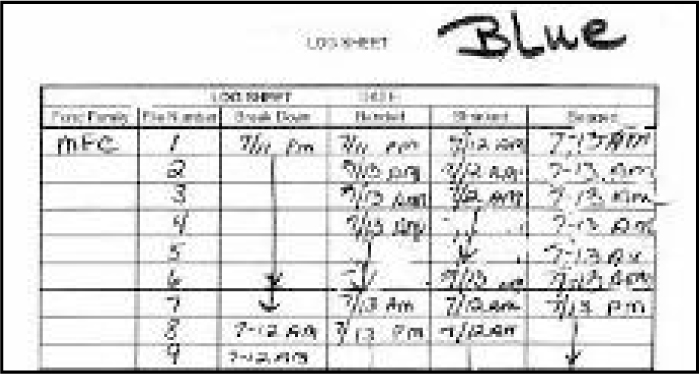 LOG SHEET BLUE
LOG SHEET
File Number Break Down
MFC 1 7/11 Pm 7/11 Pm 7/12 AM 7-13 AM
2 7/13 AM 7/12 AM 7-13 AM
3 7/13 AM 7/12 AM 7-13 AM
4 7/13 AM 7-13 AM
5 7-13 AM
6 7/13 7-13 AM
7 7/13 Am 7/12 AM 7/13 PM
8 7-12 AM 7/13 PM 7/12 AM
9 7-12 AM